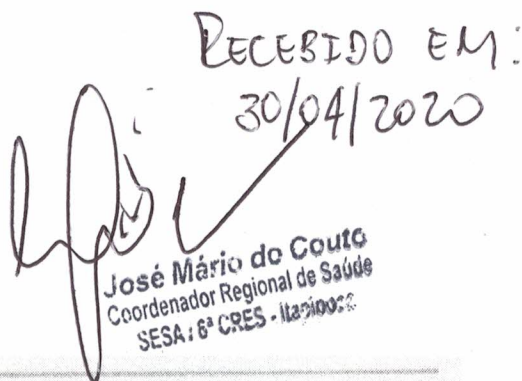 RECEBIDO EM:
30/04/2020
José Mário do Couto
Coordenador Regional de Saúde
SESA : 6ª CRES - Itapipoca